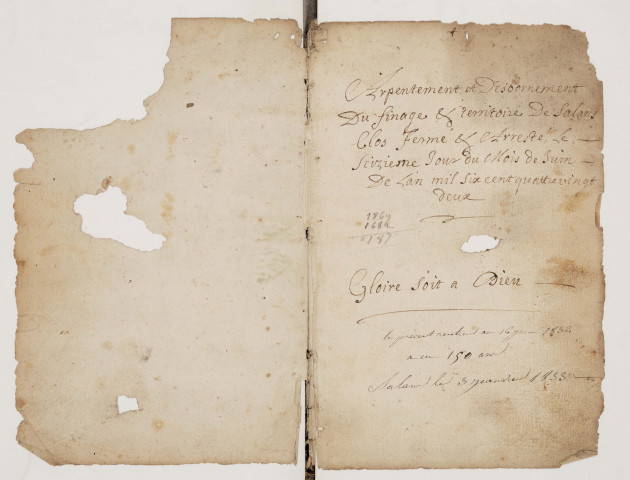 Arpentement et Desbornement
Du finage & Territoire De Salans
Clos Fermé & Arresté Le
Seizieme Jour du Mois de Juin
De Lan mil six cent quattre vingt
deux
1869
1682
187
Gloire soit a Dieu
le présent 16 1832
a eu 150 ans
Salans le 3 1833